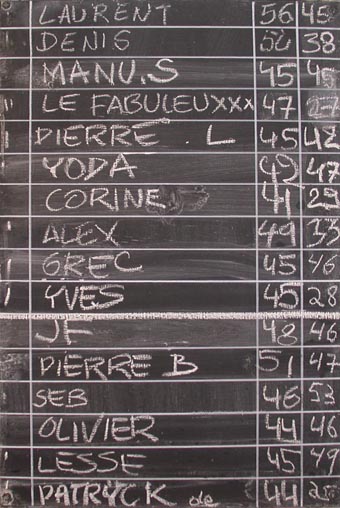 LAURENT 56 45
DENIS 38
MANU.S 45 45
LE FABULEUXXX 47 27
PIERRE . L 45 42
YODA 49 47
CORINE 41 29
ALEX 49 33
GREC 45 46
YVES 45 28
JF 48 46
PIERRE B 51 47
SEB 46 53
OLIVIER 44 46
LESSE 45 49
PATRYCK de 44 25